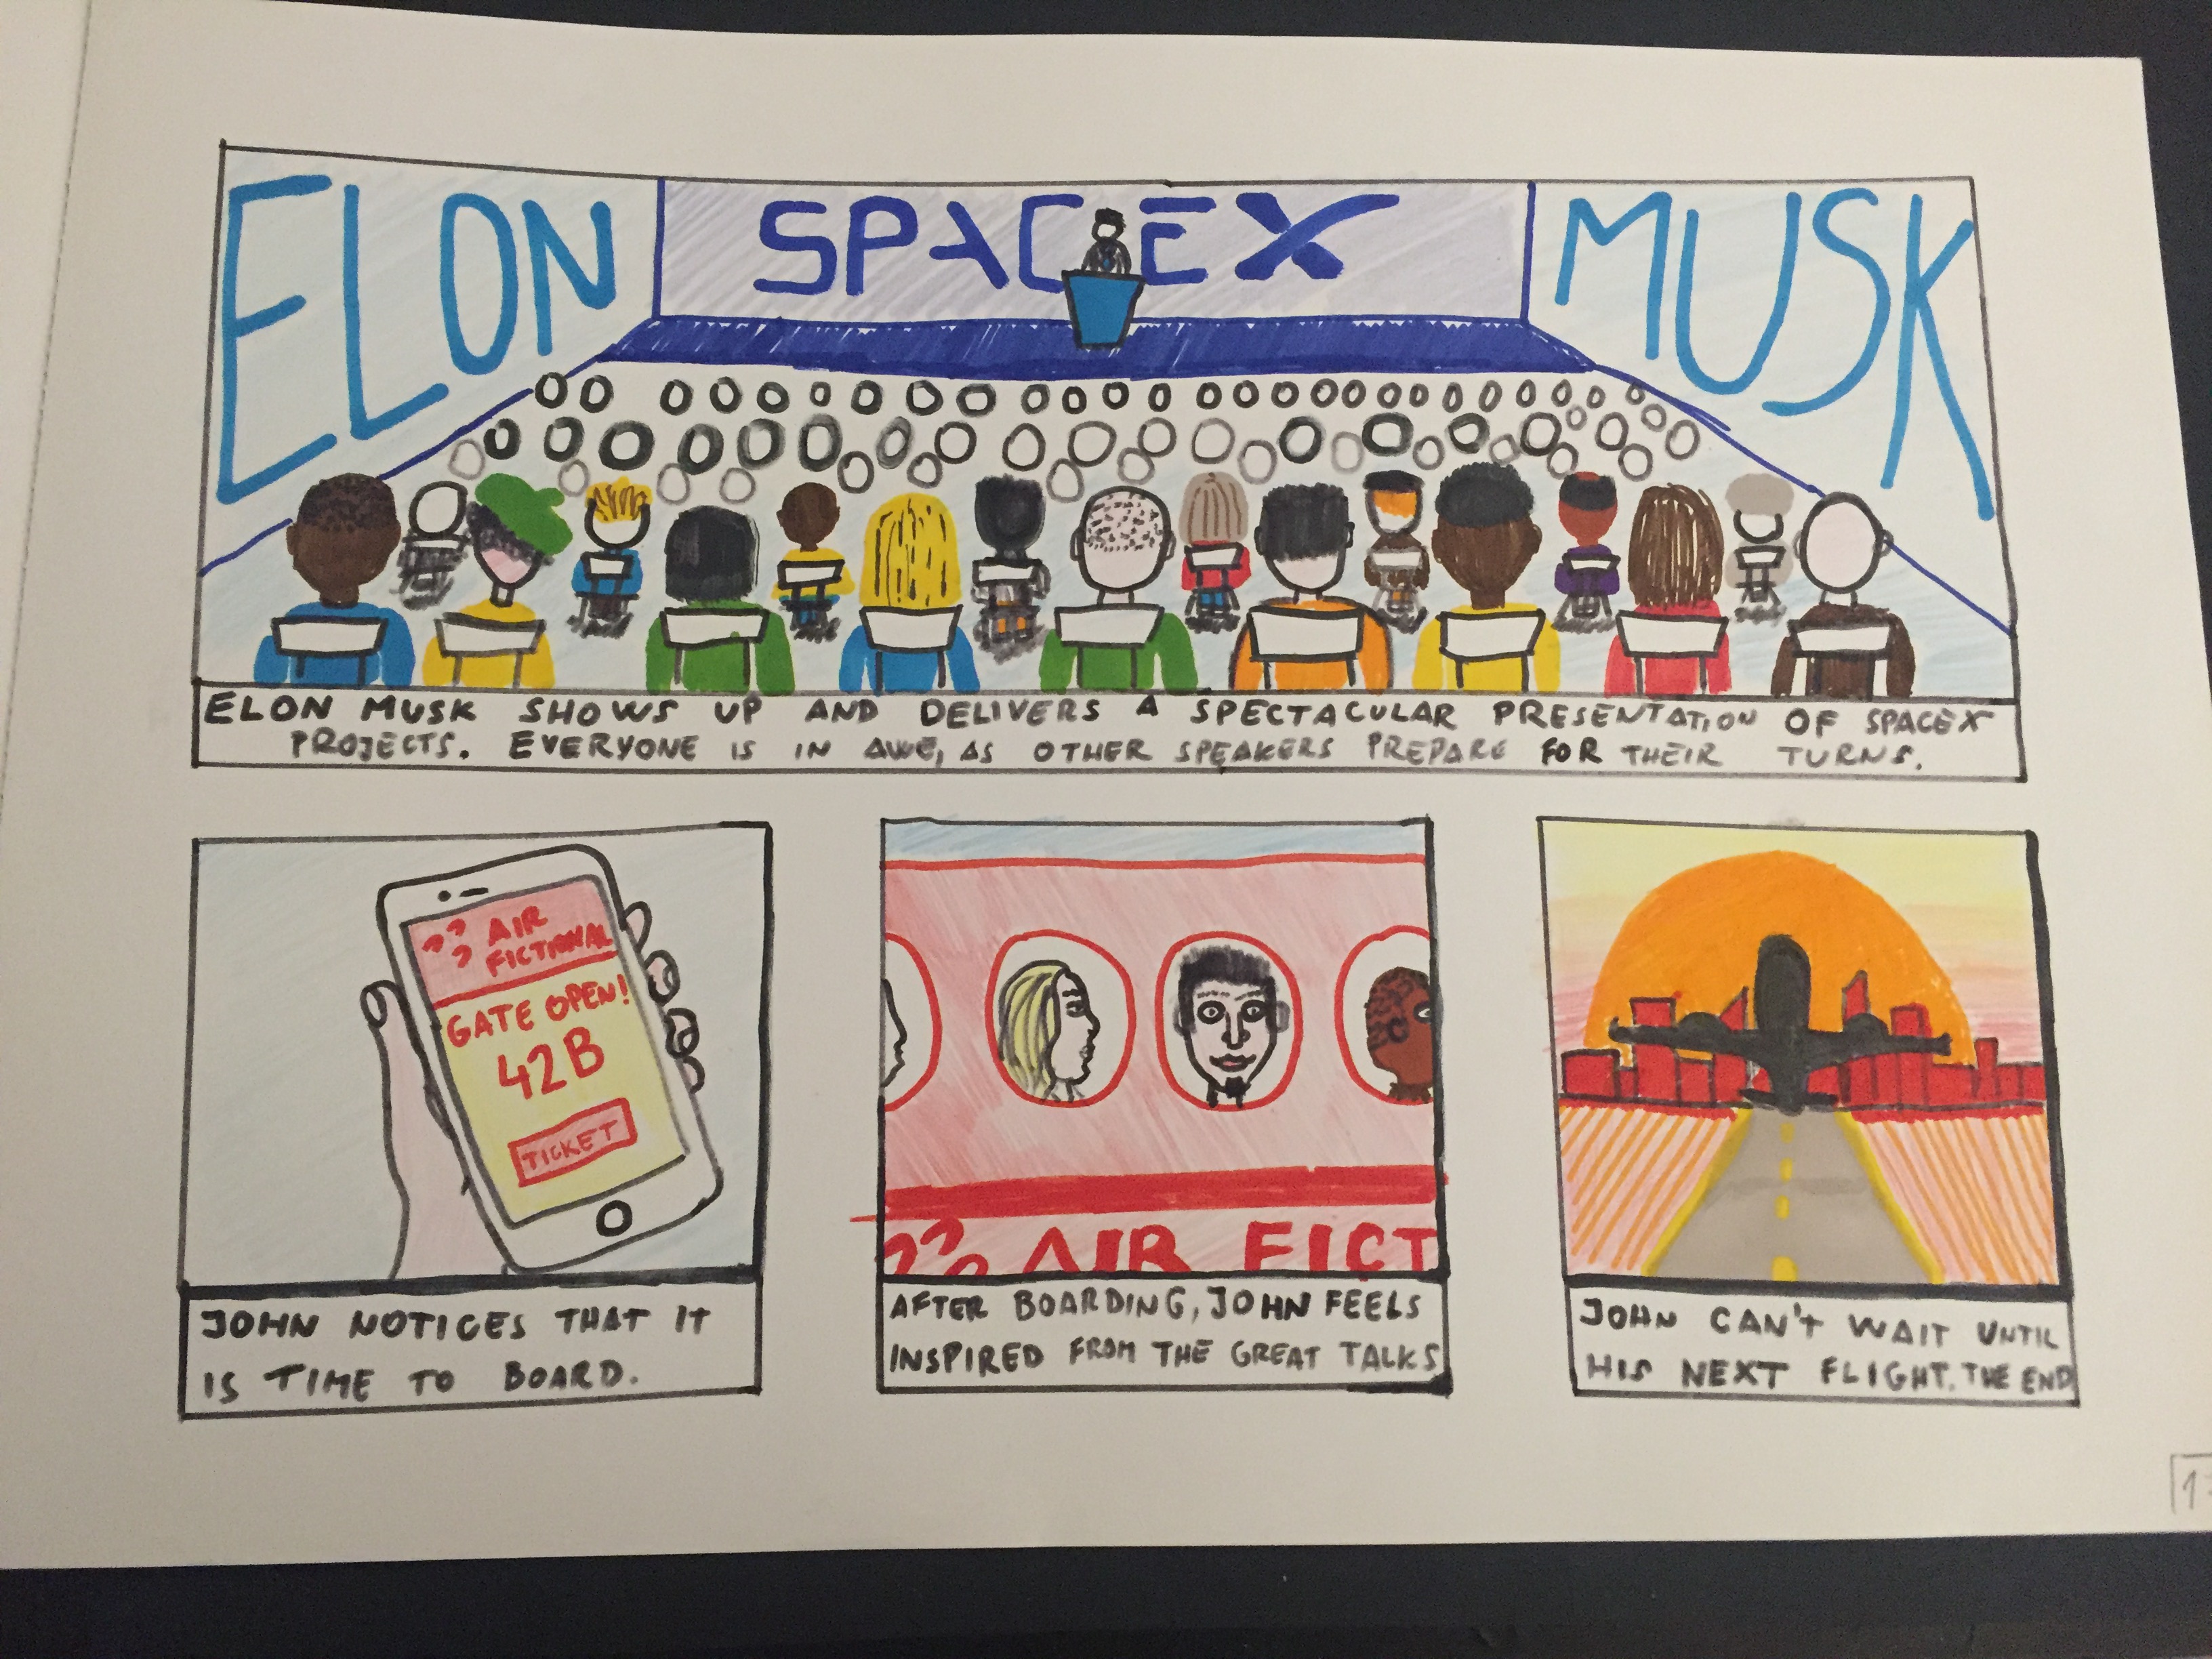 ELON
SPACEX
MUSK
ELON MUSK SHOWS UP AND DELIVERS A SPECTACULAR PRESENTATION OF SPACEX
PROJECTS. EVERYONE IS IN AWE, AS OTHER SPEAKERS PREPARE FOR THEIR TURNS.
AIR
FICTIONAL
GATE OPEN!
42B
TICKET
JOHN NOTICES THAT IT
IS TIME TO BOARD.
AIR FICT
AFTER BOARDING, JOHN FEELS
INSPIRED FROM THE GREAT TALKS
JOHN CAN'T WAIT UNTIL
HIS NEXT FLIGHT. THE END